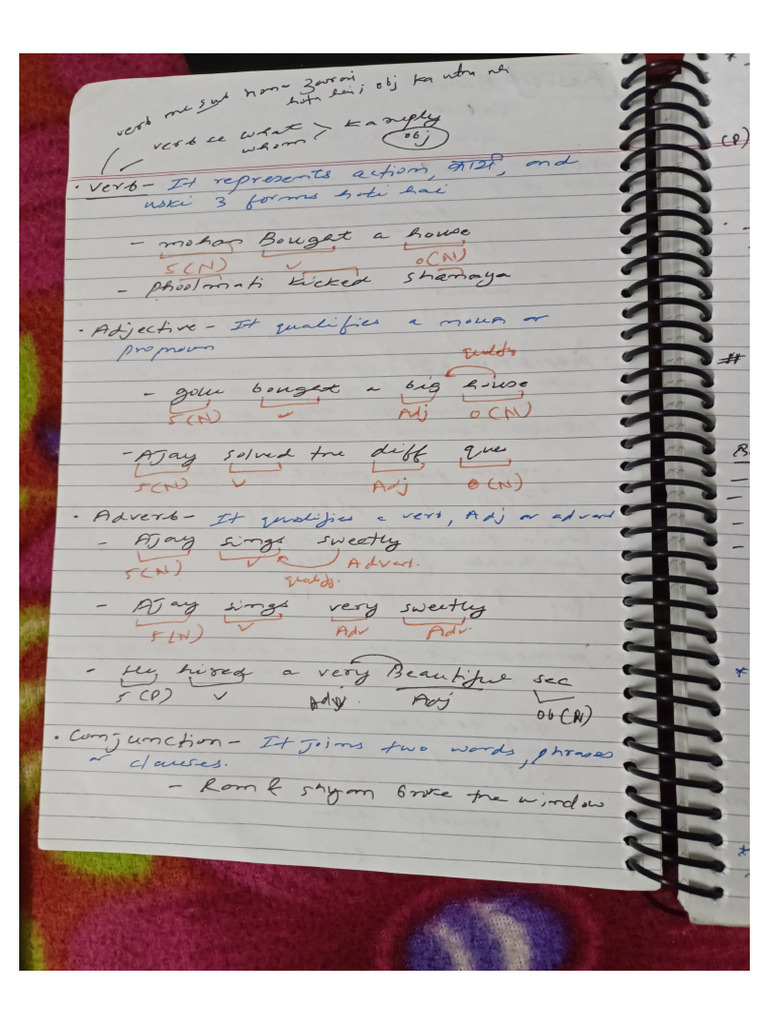 verb me sub hona zaroori
hota hai, obj ka utna nhi
verb se what
whom > ka reply
obj
• Verb - It represents action, कार्य, and
uski 3 forms hoti hai
- mohan Bought a house
S(N) V O(N)
- Phoolmati kicked Shamaya
• Adjective - It qualifies a noun or
pronoun
- golu bought a big house
S(N) V Adj O(N)
- AJay solved the diff ques
S(N) V Adj O(N)
• Adverb - It qualifies a verb, Adj or adverb
- AJay sings sweetly
S(N) V Adverb.
- AJay sings very sweetly
S(N) V Adv Adv.
- He hired a very Beautiful sec
S(P) V Adv. Adj ob(N)
• Conjunction - It joins two words, phrases
or clauses.
- Ram & shyam broke the window
(P)
#